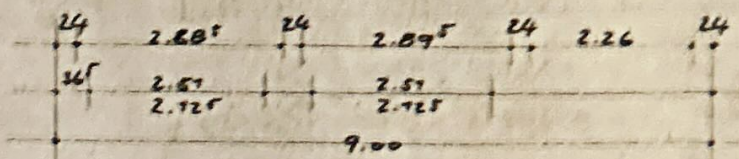 24 2.88⁵ 24 2.89⁵ 24 2.26 24
36⁵ 2.51 2.51
2.12⁵ 2.12⁵
9.00